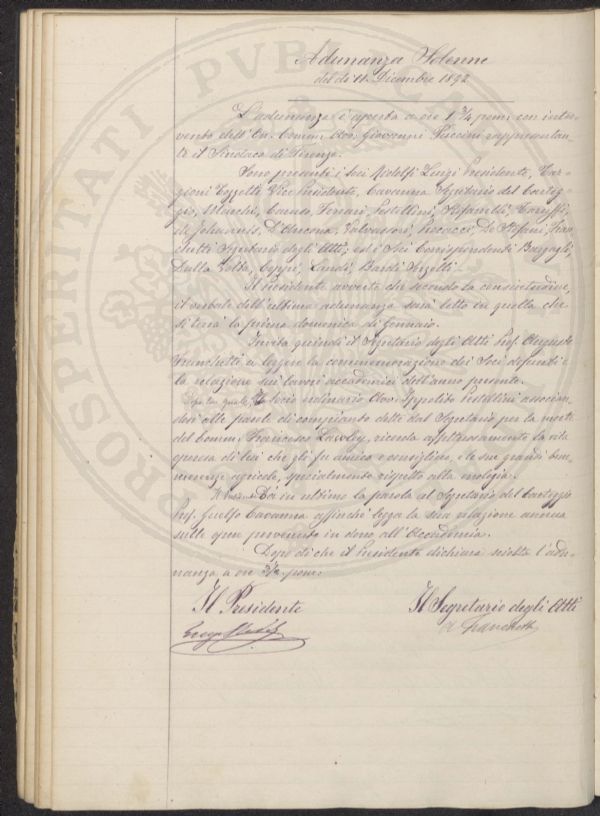 Adunanza Solenne
del dì 11 Dicembre 1892
L'adunanza è aperta a ore 1 3/4 pom. con inter-
vento dell'On. Comm. Avv. Giovanni Puccini rappresentan-
te il Sindaco di Firenze.
Sono presenti i Soci Ridolfi Luigi Presidente, Tar-
gioni Tozzetti Vice Presidente, Cavanna Segretario del Carteg-
gio, Caruso, Ferrari, Pestellini, Stefanelli, Taruffi,
de Johannis, D'Ancona, Salvagnoli, De Stefani, Fran-
chetti Segretario degli Atti; ed i Soci Corrispondenti Bargagli,
Dalla Volta, Coppi, Landi, Bardi
Il Presidente avverte che secondo la consuetudine,
il verbale dell'ultima adunanza sarà letto in quella che
si terrà la prima domenica di Gennaio.
Invita quindi il Segretario degli Atti Prof. Augusto
Franchetti a leggere la commemorazione dei Soci defunti e
la relazione sui lavori accademici dell'anno presente.
Dopo la quale, il Socio ordinario Avv. Ippolito Pestellini associan-
dosi alle parole di compianto dette dal Segretario per la morte
del Comm. Francesco Lawley, ricorda affettuosamente la vita
operosa di lui che gli fu amico e consigliere, e le sue grandi bene-
merenze agricole, specialmente rispetto alla enologia.
Dà in ultimo la parola al Segretario del Carteggio
Prof. Guelfo Cavanna affinchè legga la sua relazione annua
sulle opere pervenute in dono all'Accademia.
Dopo di che il Presidente dichiara sciolta l'adu-
nanza a ore pom.
Il Presidente
Il Segretario degli Atti
A. Franchetti
PROSPERITATI PUBLICAE